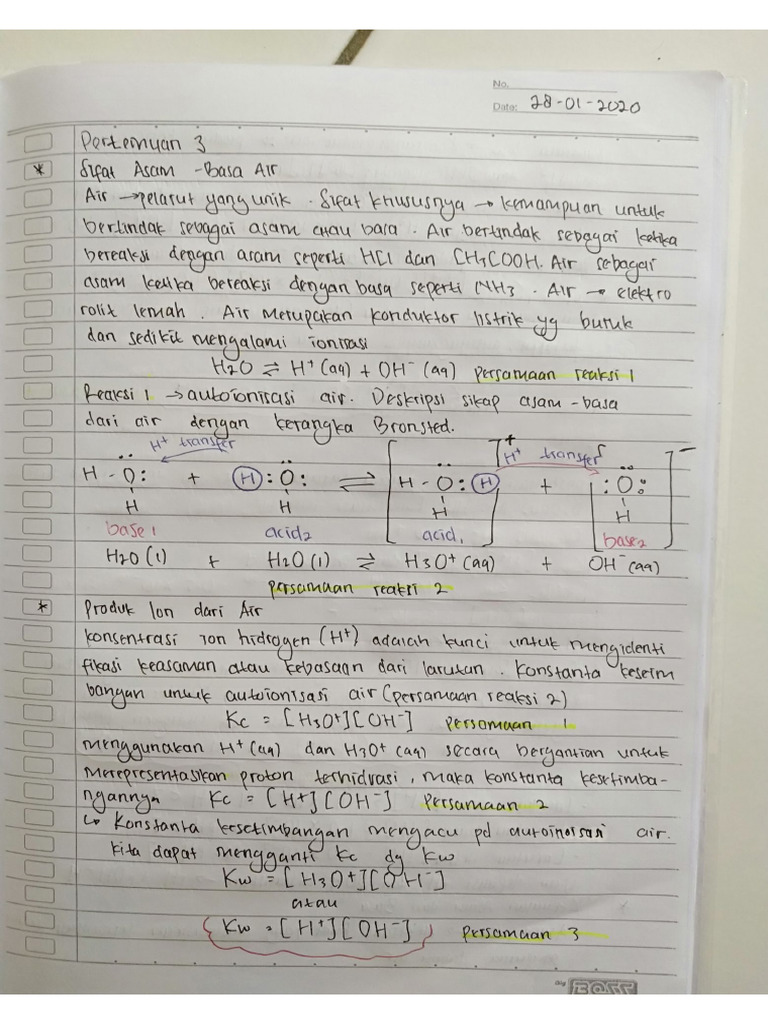 No.
Date: 28-01-2020
Pertemuan 3
* Sifat Asam - Basa Air
Air → pelarut yang unik. Sifat khususnya → kemampuan untuk
bertindak sebagai asam atau basa. Air bertindak sebagai ketika
bereaksi dengan asam seperti HCl dan CH3COOH. Air sebagai
asam ketika bereaksi dengan basa seperti NH3. Air → elektro
rolit lemah. Air merupakan konduktor listrik yg buruk
dan sedikit mengalami ionisasi
H2O ⇌ H+ (aq) + OH- (aq) persamaan reaksi 1
Reaksi 1 → autoionisasi air. Deskripsi sikap asam-basa
dari air dengan kerangka Bronsted.
H+ transfer H+ transfer
H - O: + H : O: ⇌ [H - O: H]+ + [:O:]-
H H H H
base1 acid2 acid1 base2
H2O (l) + H2O (l) ⇌ H3O+ (aq) + OH- (aq)
persamaan reaksi 2
* Produk Ion dari Air
konsentrasi ion hidrogen (H+) adalah kunci untuk mengidenti
fikasi keasaman atau kebasaan dari larutan. Konstanta keseim
bangan untuk autoionisasi air (persamaan reaksi 2)
Kc = [H3O+][OH-] persamaan 1
menggunakan H+ (aq) dan H3O+ (aq) secara bergantian untuk
Merepresentasikan proton terhidrasi, maka konstanta kesetimba-
ngannya Kc = [H+][OH-] persamaan 2
↳ Konstanta kesetimbangan mengacu pd autoinoisasi air.
kita dapat mengganti Kc dg Kw
Kw = [H3O+][OH-]
atau
Kw = [H+][OH-] persamaan 3
BOSS